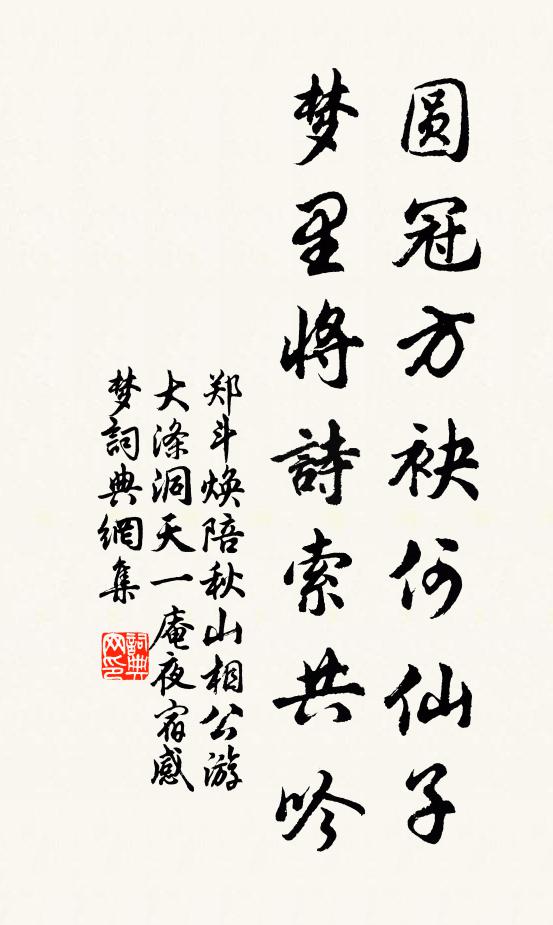 圆冠方袂何仙子
梦里将詩索共吟
郑斗焕陪秋山相公游
大涤洞天一庵夜宿感
梦詞典網集
詞典网印